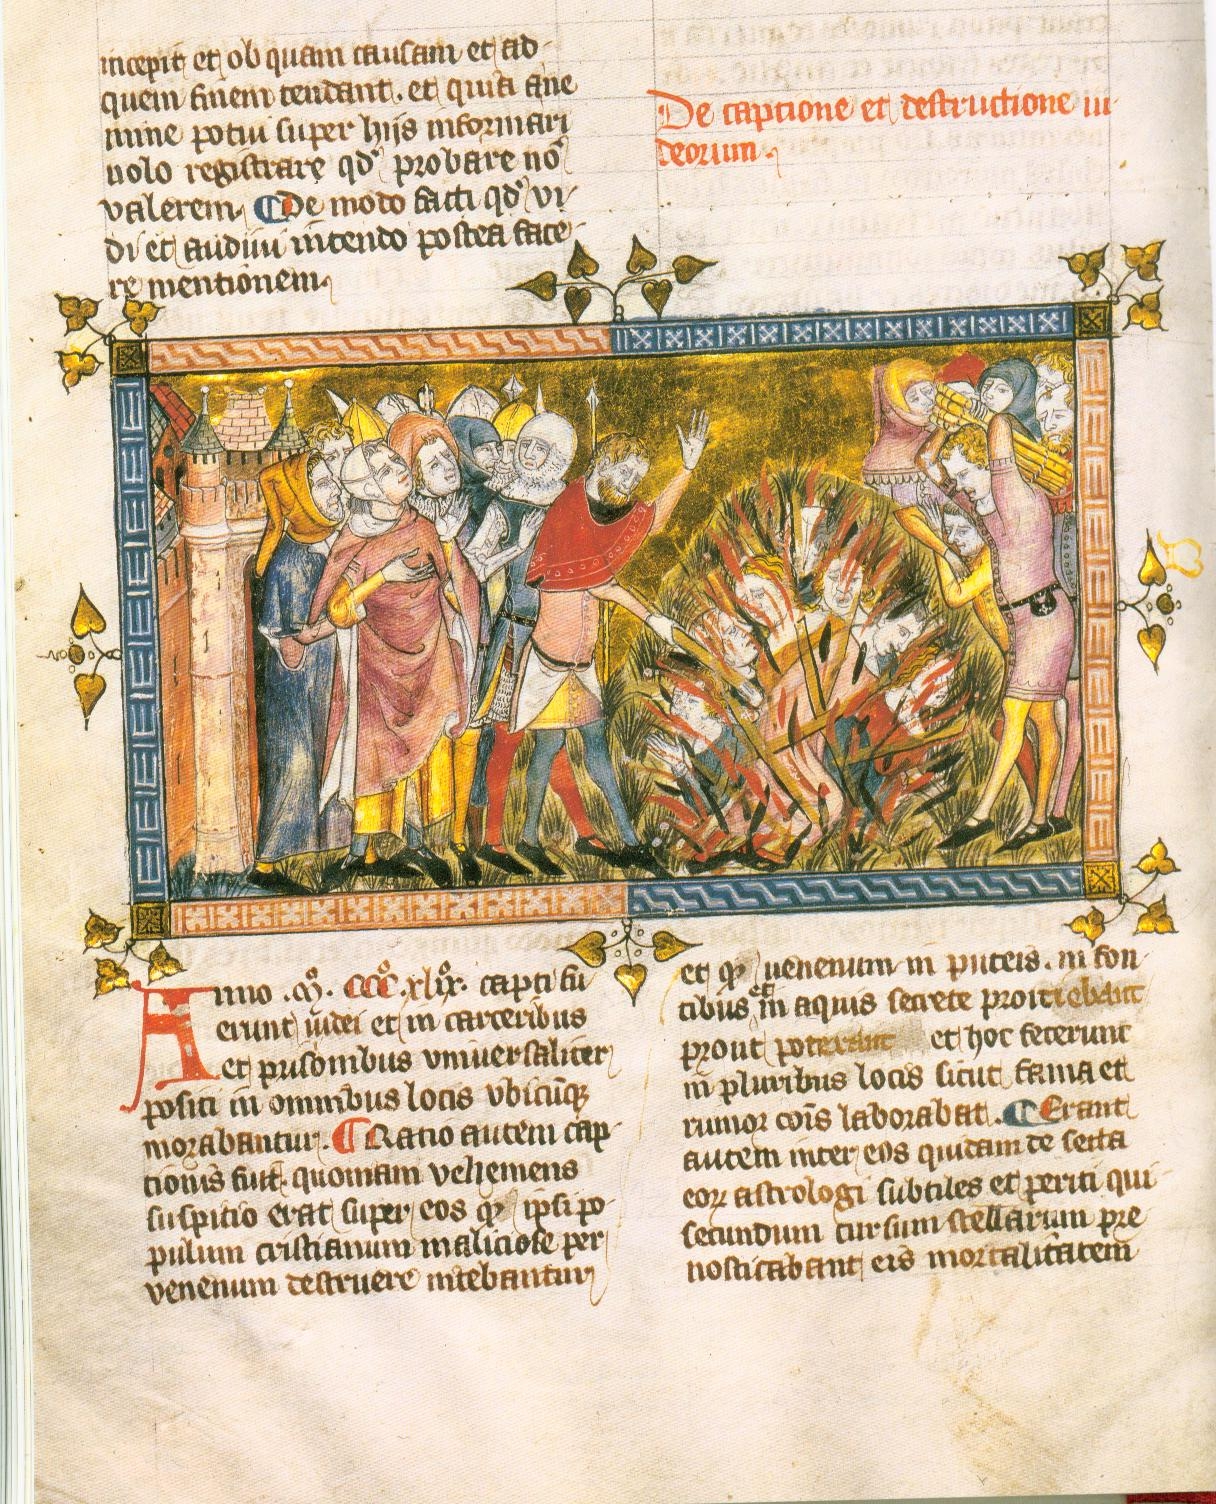 incepit et ob quam causam et ad
quem finem tendant. et quia ane
mine potui super hijs informari
nolo registrare qd' probare no
valerem. De modo facti qd' vi
di et audiui intendo postea face
re mentionem.
De captione et destructione iu
deorum.
Anno .mo. ccco. xlix. capti fu
erunt iudei et in carceribus
et prisonibus vniuersaliter
positi in omnibus locis vbicūq
morabantur. Ratio autem cap
tionis fuit. quoniam vehemens
suspitio erat super eos q ipsi po
pulum cristianum maliciose per
venenum destruere nitebantur
et q uenenum in puteis. in fon
tibus et in aquis secrete proiciebant
prout poterant et hoc fecerunt
in pluribus locis sicut fama et
rumor cōis laborabat. Erant
autem inter eos quidam de secta
eorꝝ astrologi subtiles et periti qui
secundum cursum stellarum pre
nosticabant eis mortalitatem